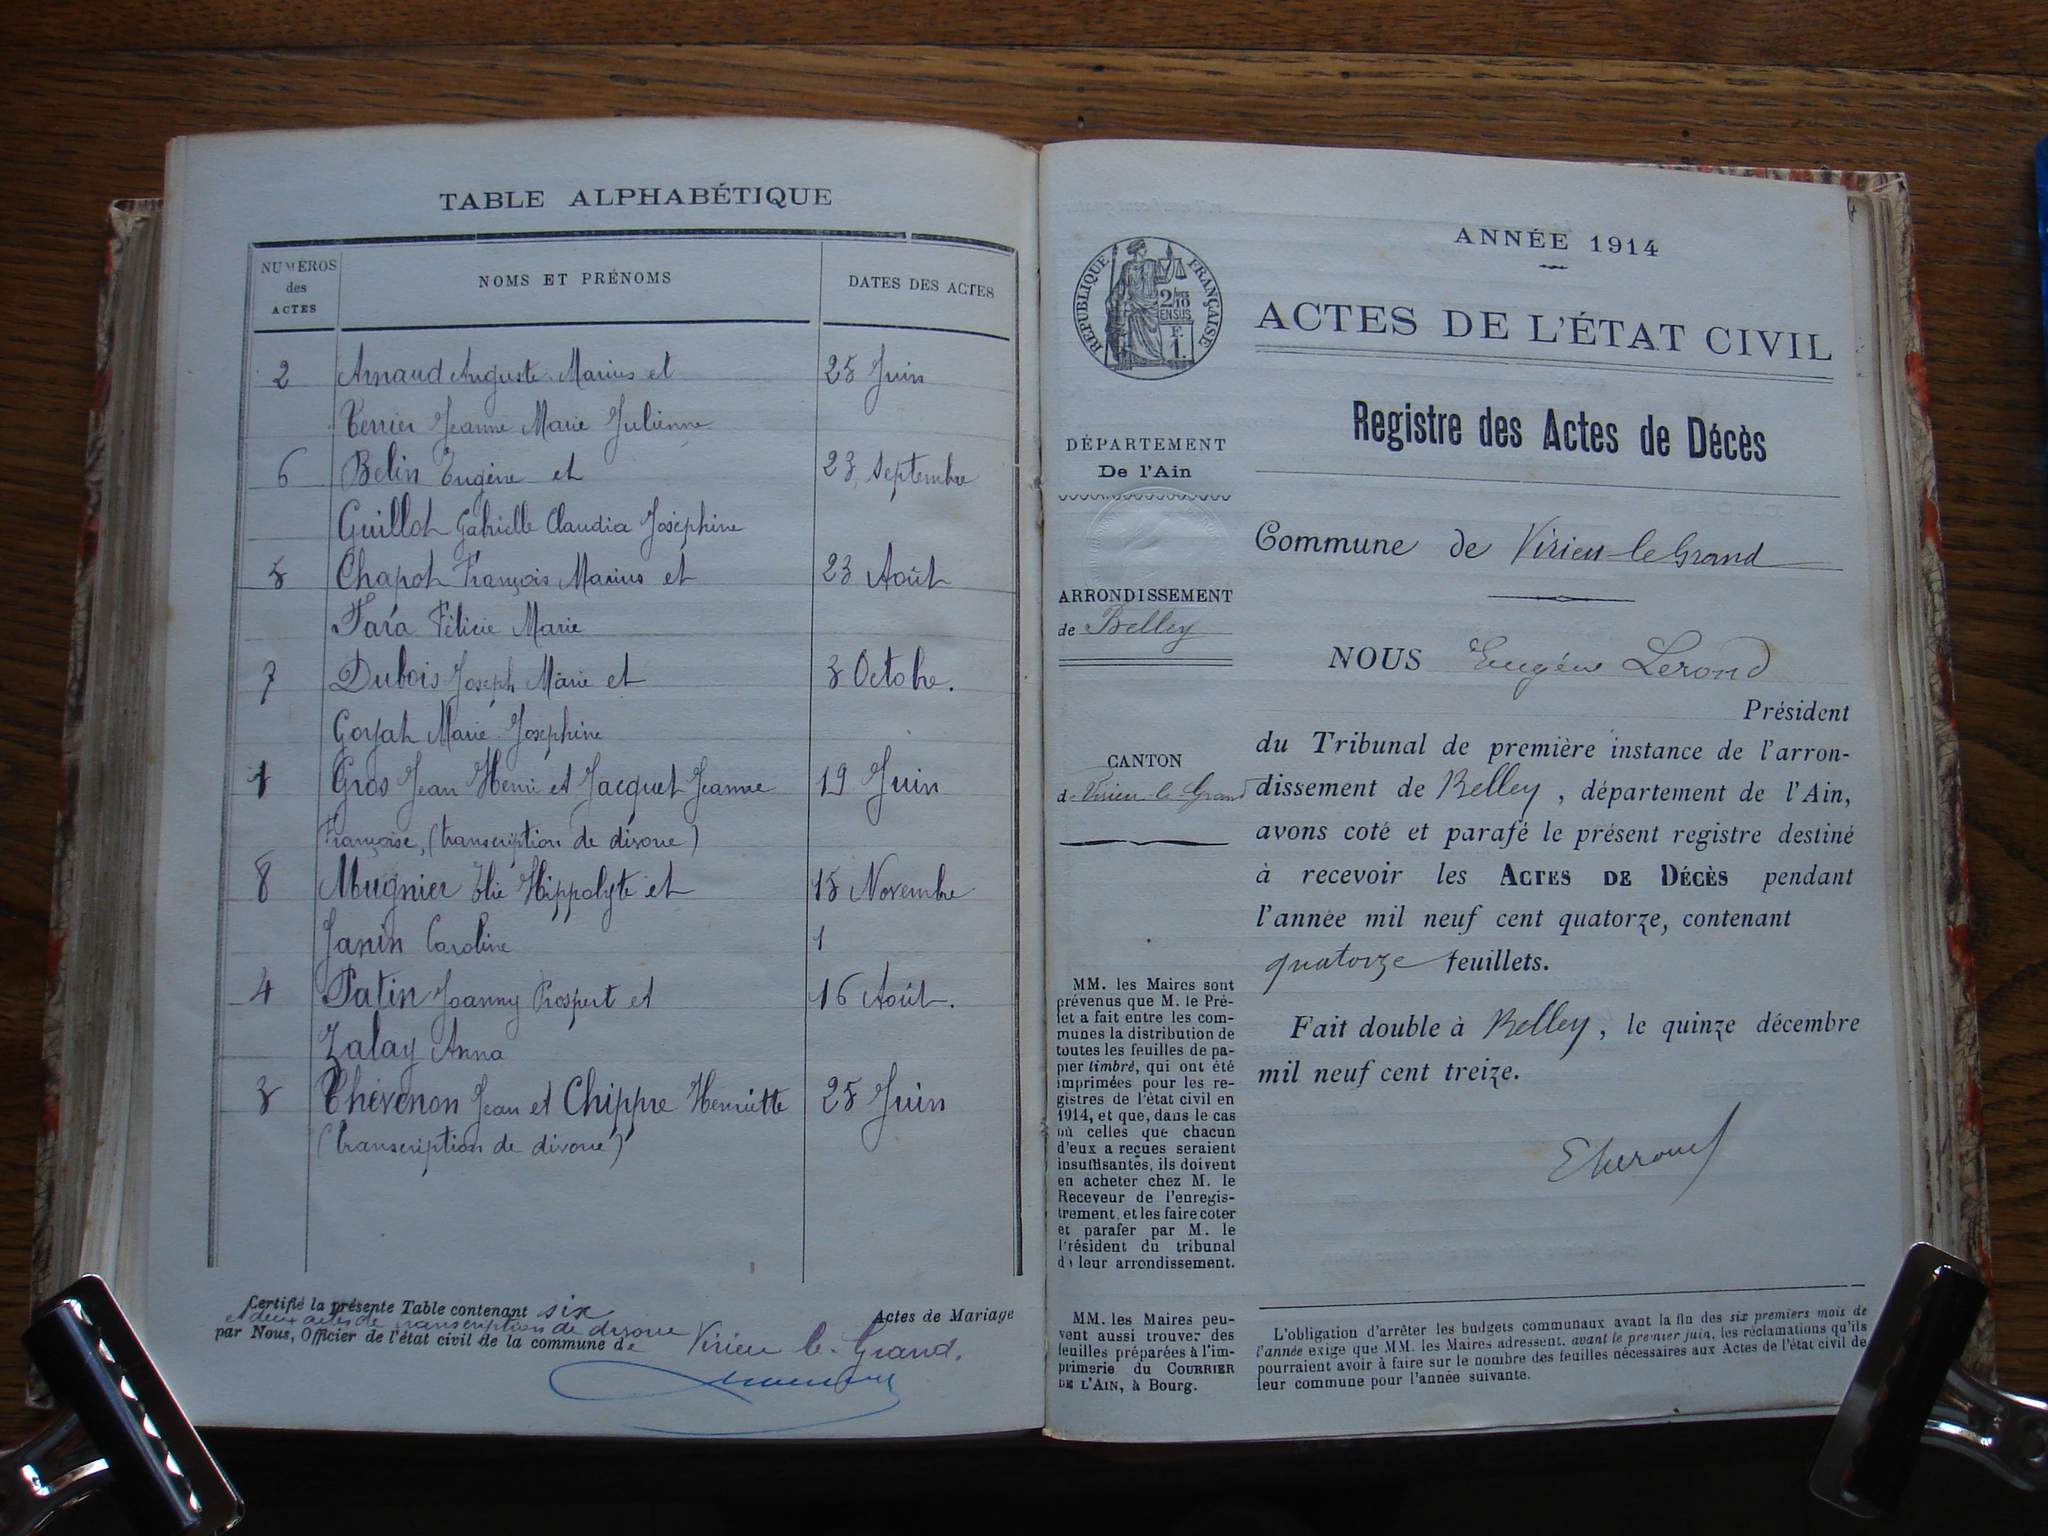 TABLE ALPHABÉTIQUE
NUMÉROS
des
ACTES
NOMS ET PRÉNOMS
DATES DES ACTES
2 Arnaud Auguste Marius et 25 Juin
Terrier Jeanne Marie Julienne
6 Belin Eugène et 23 Septembre
Guillot Gabrielle Claudia Joséphine
5 Chapot François Marius et 23 Août
Félicie Marie
7 Dubois Joseph Marie et 3 Octobre.
Goyat Marie Joséphine
1 Gros Jean Henri et Jacquet Jeanne 19 Juin
Françoise, (transcription de divorce)
8 Mugnier Elie Hippolyte et 15 Novembre
Janin Caroline
4 Patin Joanny Prospert et 16 Août.
Zalay Anna
3 Thévenon Jean et Chippre Henriette 25 Juin
(transcription de divorce)
Certifié la présente Table contenant six Actes de Mariage
et deux actes de transcription de divorce
par Nous, Officier de l'état civil de la commune de Virieu-le-Grand.
ANNÉE 1914
RÉPUBLIQUE FRANÇAISE
2/10
EN SUS
F.
1.
ACTES DE L'ÉTAT CIVIL
Registre des Actes de Décès
DÉPARTEMENT
De l'Ain
Commune de Virieu-le-Grand
ARRONDISSEMENT
de Belley
NOUS Eugène Lerond
Président
du Tribunal de première instance de l'arron-
CANTON
d Virieu-le-Grand
dissement de Belley, département de l'Ain,
avons coté et parafé le présent registre destiné
à recevoir les ACTES DE DÉCÈS pendant
l'année mil neuf cent quatorze, contenant
quatorze feuillets.
Fait double à Belley, le quinze décembre
mil neuf cent treize.
MM. les Maires sont
prévenus que M. le Pré-
fet a fait entre les com-
munes la distribution de
toutes les feuilles de pa-
pier timbré, qui ont été
imprimées pour les re-
gistres de l'état civil en
1914, et que, dans le cas
où celles que chacun
d'eux a reçues seraient
insuffisantes, ils doivent
en acheter chez M. le
Receveur de l'enregis-
trement, et les faire coter
et parafer par M. le
Président du tribunal
de leur arrondissement.
MM. les Maires peu-
vent aussi trouver des
feuilles préparées à l'im-
primerie du COURRIER
DE L'AIN, à Bourg.
L'obligation d'arrêter les budgets communaux avant la fin des six premiers mois de
l'année exige que MM. les Maires adressent, avant le premier juin, les réclamations qu'ils
pourraient avoir à faire sur le nombre des feuilles nécessaires aux Actes de l'état civil de
leur commune pour l'année suivante.